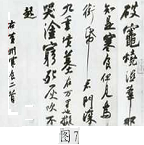 破竈燒濕葦那
知是寒食但見烏
銜帋君門深
九重墳墓在萬里也擬
哭塗窮死灰吹不
起
右黄州寒食二首
图7